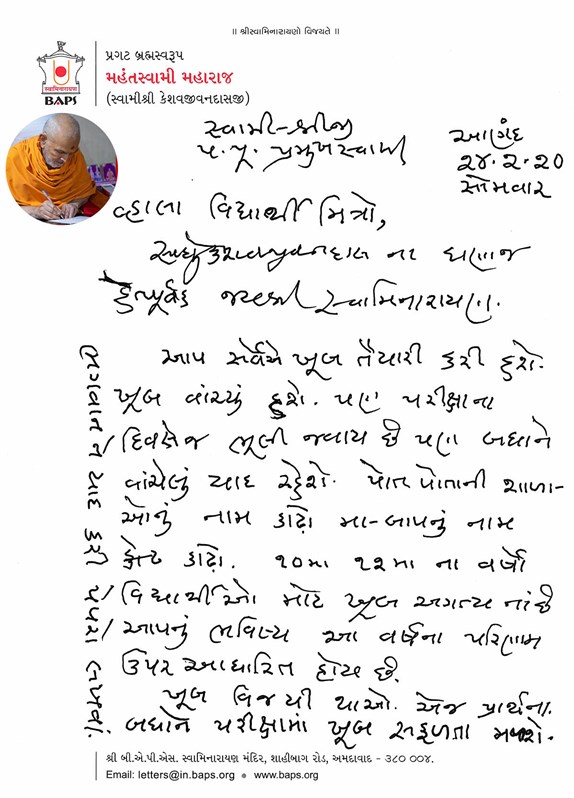 ॥ શ્રીસ્વામિનારાયણો વિજયતે ॥
પ્રગટ બ્રહ્મસ્વરૂપ
મહંતસ્વામી મહારાજ
(સ્વામીશ્રી કેશવજીવનદાસજી)
સ્વામિનારાયણ
BAPS
સ્વામી-શ્રીજી
પ.પૂ. પ્રમુખસ્વામી
આણંદ
૨૪.૨.૨૦
સોમવાર
વ્હાલા વિદ્યાર્થી મિત્રો,
સાધુ કેશવજીવનદાસ ના ઘણાજ
હેતપૂર્વક જયશ્રી સ્વામિનારાયણ.
આપ સર્વેએ ખૂબ તૈયારી કરી હશે.
ખૂબ વાંચ્યું હશે. પણ પરીક્ષાના
દિવસેજ ભૂલી જવાય છે પણ બધાને
વાંચેલું યાદ રહેશે. પોત પોતાની શાળા-
ઓનું નામ કાઢો મા-બાપનું નામ
કાઢો. ૧૦મા ૧૨મા ના વર્ષો
વિદ્યાર્થીઓ માટે ખૂબ અગત્ય નાં છે
આપનું ભવિષ્ય આ વર્ષના પરિણામ
ઉપર આધારિત હોય છે.
ખૂબ વિજયી થાઓ. એજ પ્રાર્થના.
બધાને પરીક્ષામાં ખૂબ સફળતા મળશે.
ભગવાન ને યાદ કરી પેપરો લખવાં.
શ્રી બી.એ.પી.એસ. સ્વામિનારાયણ મંદિર, શાહીબાગ રોડ, અમદાવાદ - ૩૮૦ ૦૦૪.
Email: letters@in.baps.org • www.baps.org